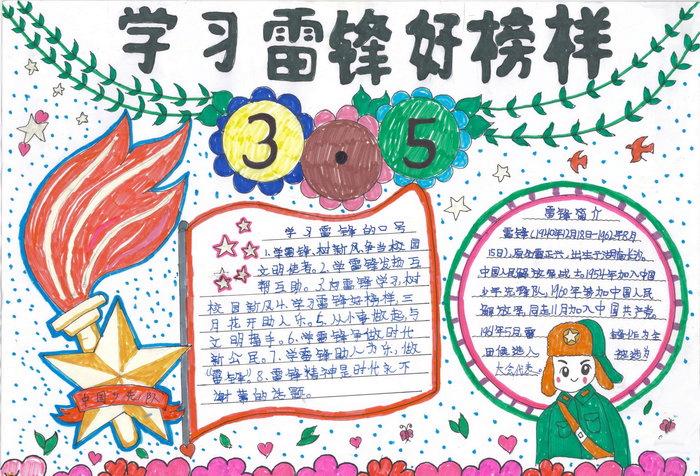 学习雷锋好榜样
3·5
学习雷锋的口号
1.学雷锋,树新风,争当校园
文明使者。2.学雷锋发扬互
帮互助。3.向雷锋学习,树
校园新风。4.学习雷锋好榜样,三
月花开助人乐。5.从小事做起,与
文明携手。6.学雷锋争做时代
新公民。7.学雷锋助人为乐,做
"雷锋"。8.雷锋精神是时代永不
谢幕的主题。
雷锋简介
雷锋(1940年12月18日-1962年8月
15日),原名雷正兴,出生于湖南长沙,
中国人民解放军战士,1954年加入中国
少年先锋队,1960年参加中国人民
解放军,同年11月加入中国共产党。
1961年5月,雷锋作为
田候选人 挑选为
大会代表。
中国少先队